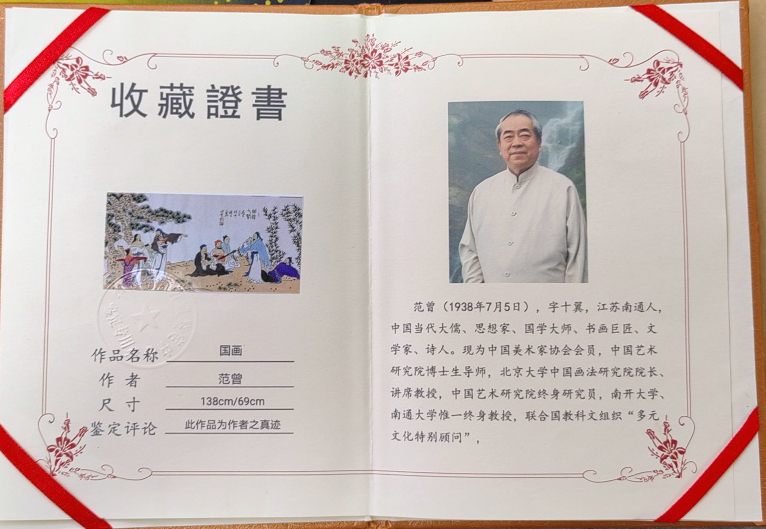 收藏證書
作品名称 国画
作者 范曾
尺寸 138cm/69cm
鉴定评论 此作品为作者之真迹
范曾（1938年7月5日），字十翼，江苏南通人，
中国当代大儒、思想家、国学大师、书画巨匠、文
学家、诗人。现为中国美术家协会会员，中国艺术
研究院博士生导师，北京大学中国画法研究院院长、
讲席教授，中国艺术研究院终身研究员，南开大学、
南通大学惟一终身教授，联合国教科文组织“多元
文化特别顾问”，